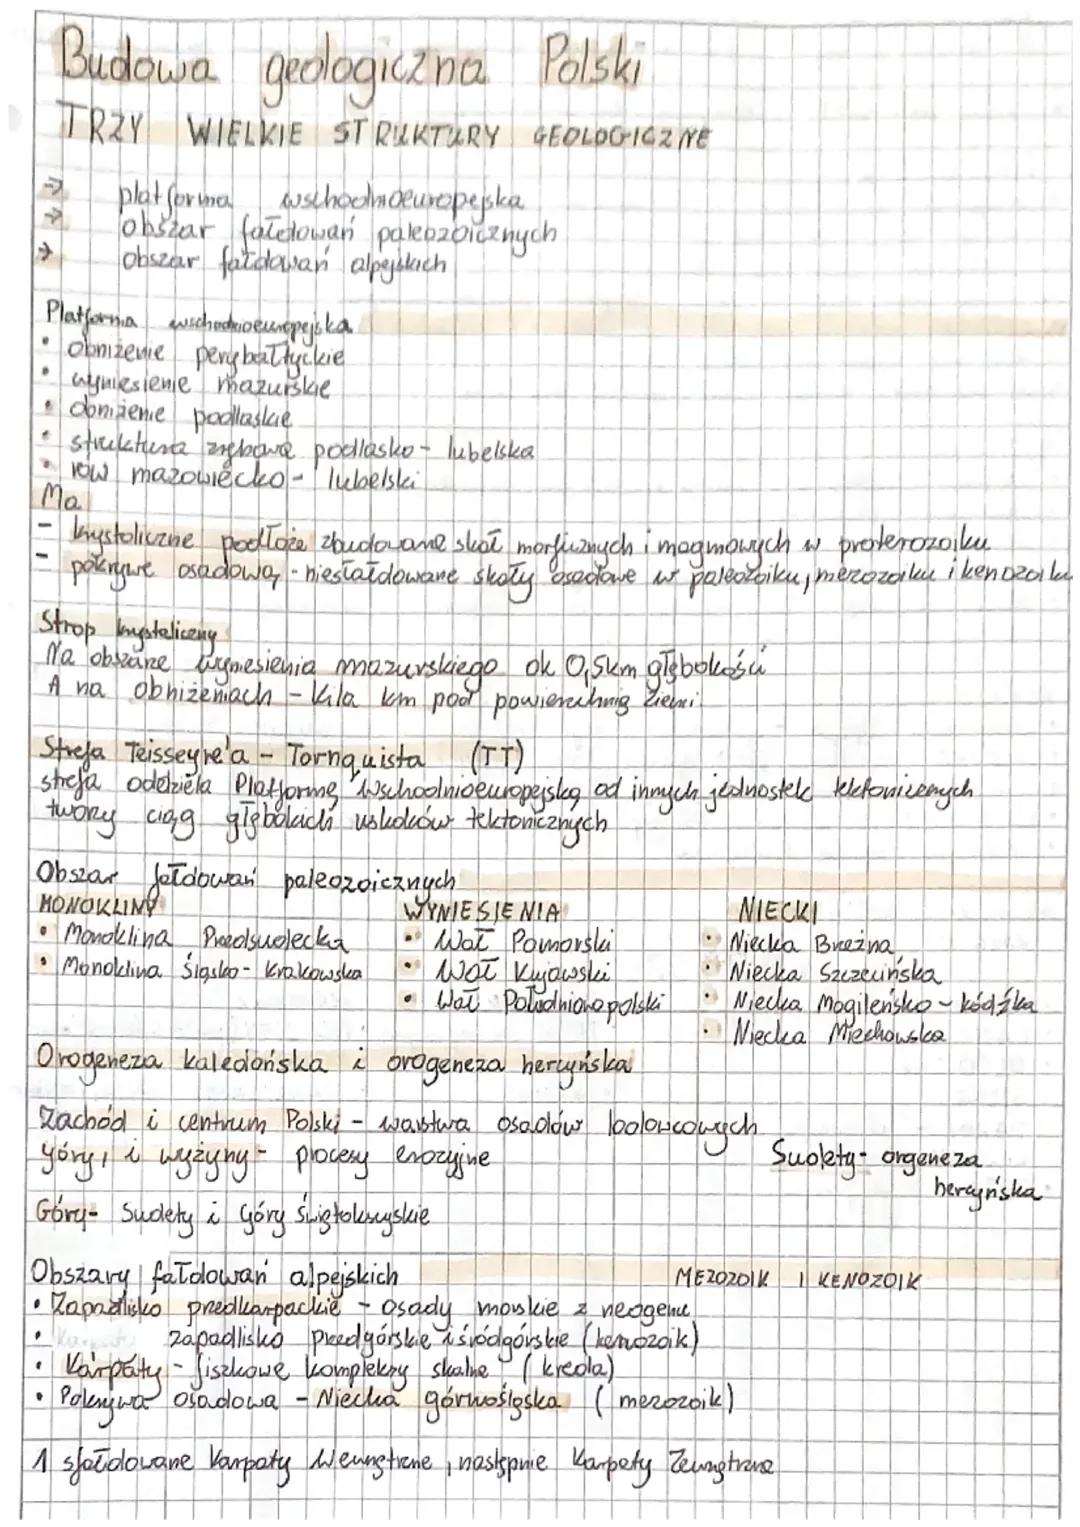 Budowa geologiczna Polski
TRZY WIELKIE STRUKTURY GEOLOGICZNE
→ platforma wschodnioeuropejska
→ obszar fałdowań paleozoicznych
→ obszar fałdowań alpejskich
Platforma wschodnioeuropejska
• obniżenie perybałtyckie
• wyniesienie mazurskie
• obniżenie podlaskie
• struktura zrębowa podlasko-lubelska
• rów mazowiecko-lubelski
Ma
- krystaliczne podłoże zbudowane skał morficznych i magmowych w proterozoiku
- pokrywe osadową - niesfałdowane skały osadowe w paleozoiku, mezozoiku i kenozoiku
Strop krystaliczny
Na obszarze wyniesienia mazurskiego ok 0,5km głębokości
A na obniżeniach - kila km pod powierzchnią ziemi
Strefa Teisseyre'a - Tornquista (TT)
strefa oddziela Platformę Wschodnioeuropejską od innych jednostek tektonicznych
tworzy ciąg głębokich uskoków tektonicznych
Obszar fałdowań paleozoicznych
MONOKLINY WYNIESIENIA NIECKI
• Monoklina Przedsudecka • Wał Pomorski • Niecka Brzeżna
• Monoklina Śląsko-Krakowska • Wał Kujawski • Niecka Szczecińska
• Wał Południowopolski • Niecka Mogileńsko-Łódźka
• Niecka Miechowska
Orogeneza kaledońska i orogeneza hercyńska
Zachód i centrum Polski - warstwa osadów lodowcowych
góry, i wyżyny - procesy erozyjne Sudety - orgeneza
hercyńska
Góry- Sudety i Góry Świętokrzyskie
Obszary fałdowań alpejskich MEZOZOIK I KENOZOIK
• Zapadlisko przedkarpackie - osady morskie z neogenu
• zapadlisko przedgórskie i śródgórskie (kenozoik)
• Karpaty - fiszkowe kompleksy skalne (kreda)
• Pokrywa osadowa - Niecka górnośląska (mezozoik)
1 sfałdowane Karpaty Wewnętrzne, następnie Karpaty Zewnętrzne